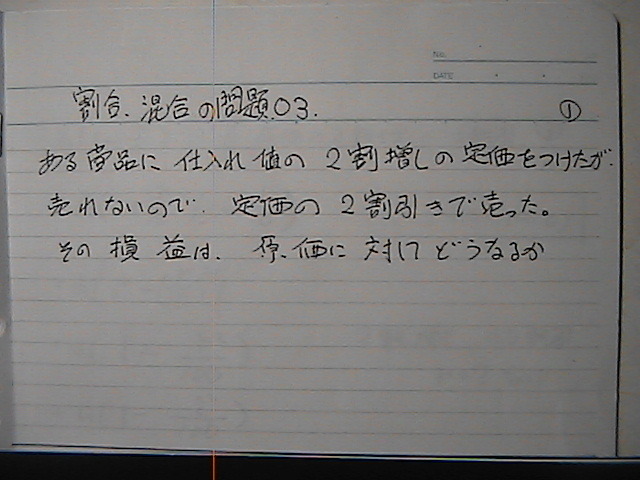 No.
DATE
割合.混合の問題.03.
①
ある商品に 仕入れ値の 2割増しの定価をつけたが.
売れないので.定価の2割引きで売った。
その損益は.原.価に対してどうなるか